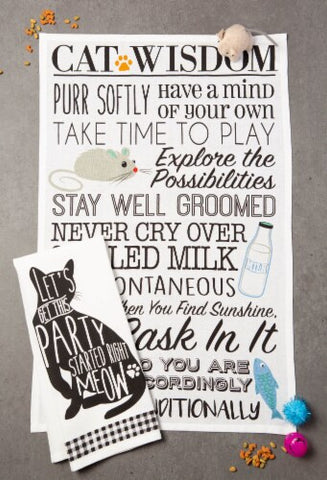 CAT WISDOM
PURR SOFTLY Have a mind
of your own
TAKE TIME TO PLAY
Explore the
Possibilities
STAY WELL GROOMED
NEVER CRY OVER
LED MILK
ONTANEOUS
hen You Find Sunshine,
ask In It
O YOU ARE
CORDINGLY
DITIONALLY
LET'S
GET THIS
PARTY
STARTED RIGHT
MEOW